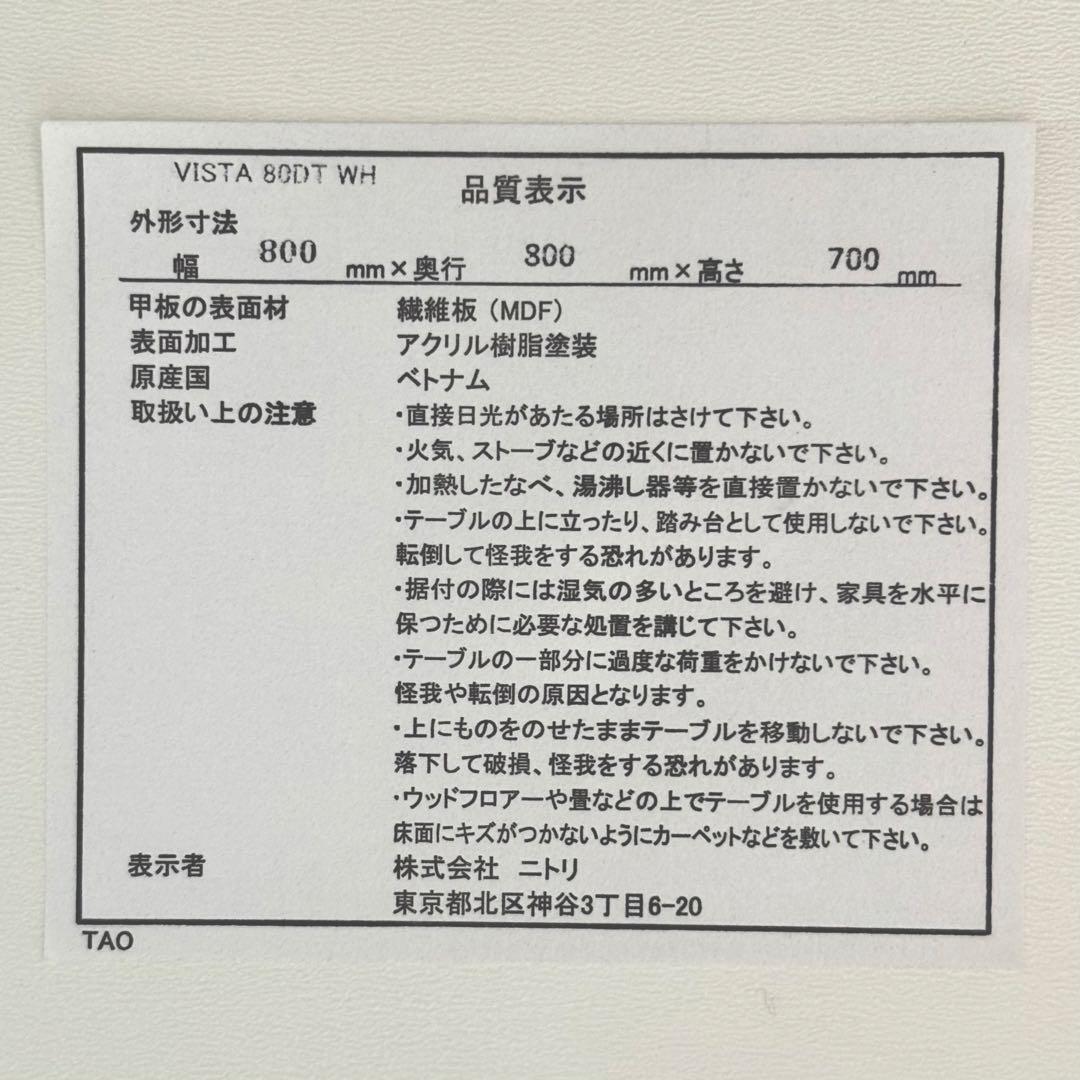 VISTA 80DT WH
品質表示
外形寸法
幅 800 mm×奥行 800 mm×高さ 700 mm
甲板の表面材 繊維板(MDF)
表面加工 アクリル樹脂塗装
原産国 ベトナム
取扱い上の注意 ・直接日光があたる場所はさけて下さい。
・火気、ストーブなどの近くに置かないで下さい。
・加熱したなべ、湯沸し器等を直接置かないで下さい。
・テーブルの上に立ったり、踏み台として使用しないで下さい。
転倒して怪我をする恐れがあります。
・据付の際には湿気の多いところを避け、家具を水平に
保つために必要な処置を講じて下さい。
・テーブルの一部分に過度な荷重をかけないで下さい。
怪我や転倒の原因となります。
・上にものをのせたままテーブルを移動しないで下さい。
落下して破損、怪我をする恐れがあります。
・ウッドフロアーや畳などの上でテーブルを使用する場合は
床面にキズがつかないようにカーペットなどを敷いて下さい。
表示者 株式会社 ニトリ
東京都北区神谷3丁目6-20
TAO